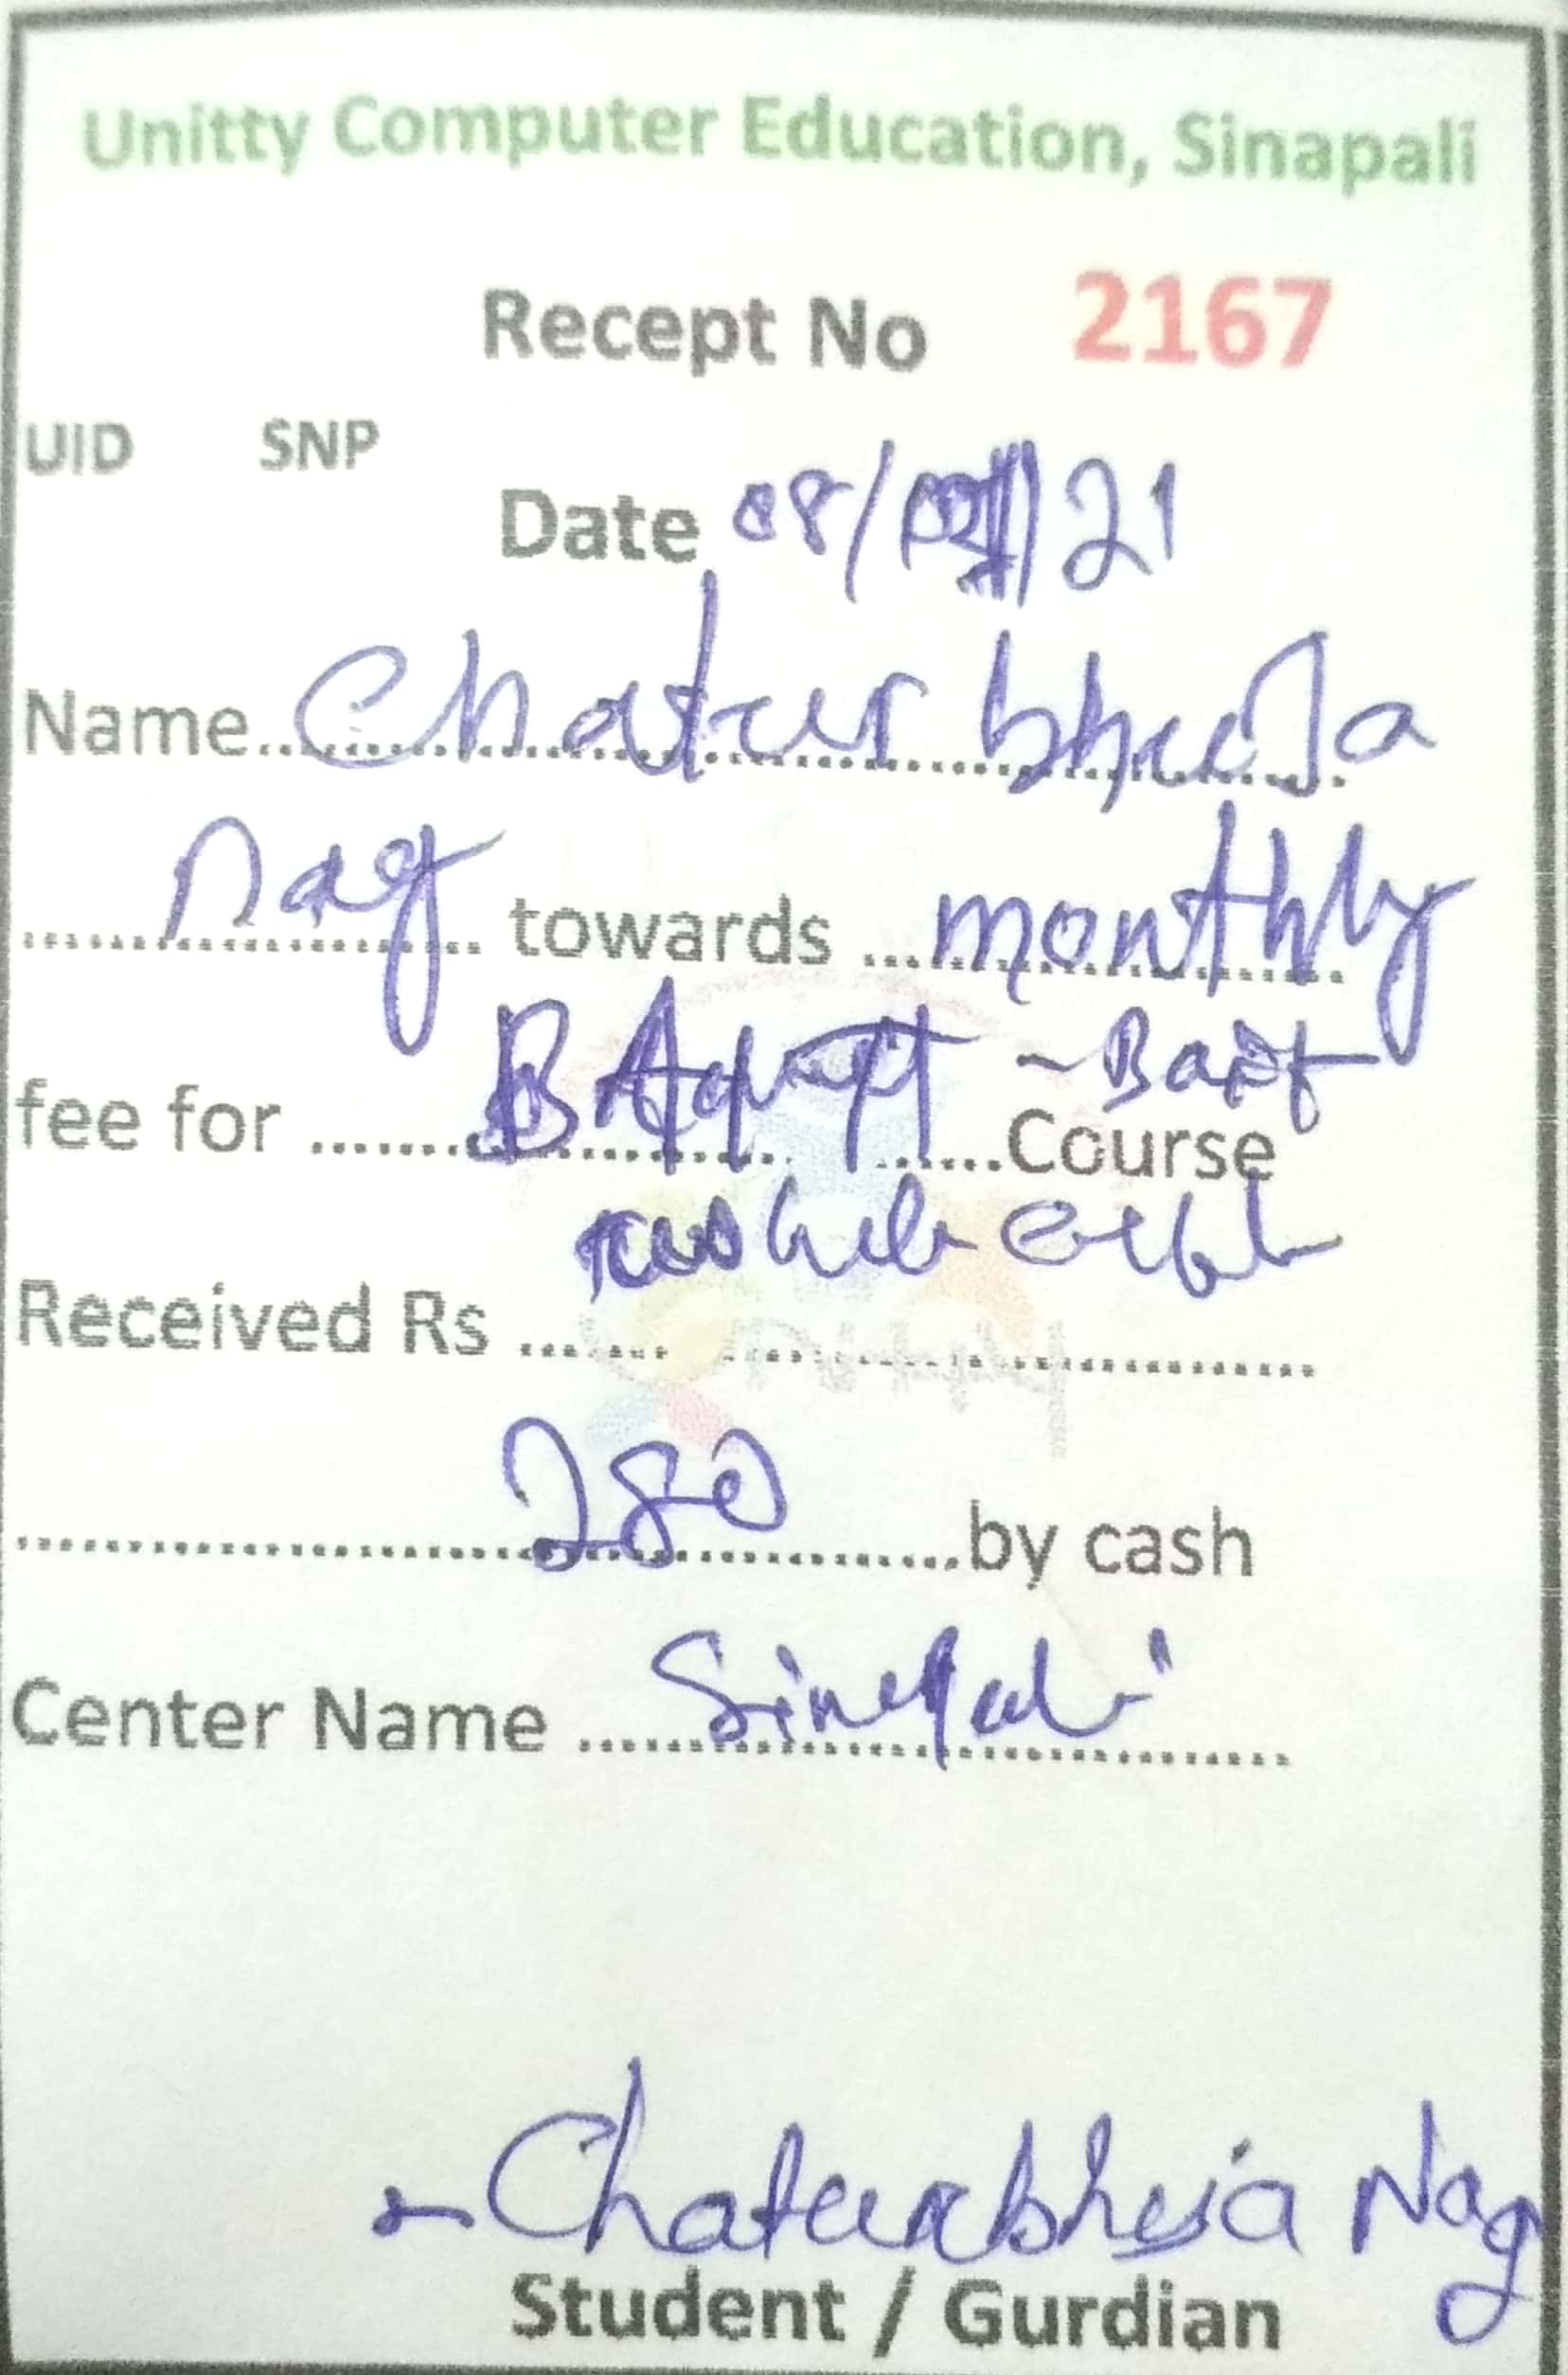 Unitty Computer Education, Sinapali
Recept No 2167
UID SNP
Date 08/ /21
Name Chatur bhuja
nag towards monthly
fee for Course
Received Rs
280 by cash
Center Name Sinapali
Chaturbhuja Nag
Student / Gurdian